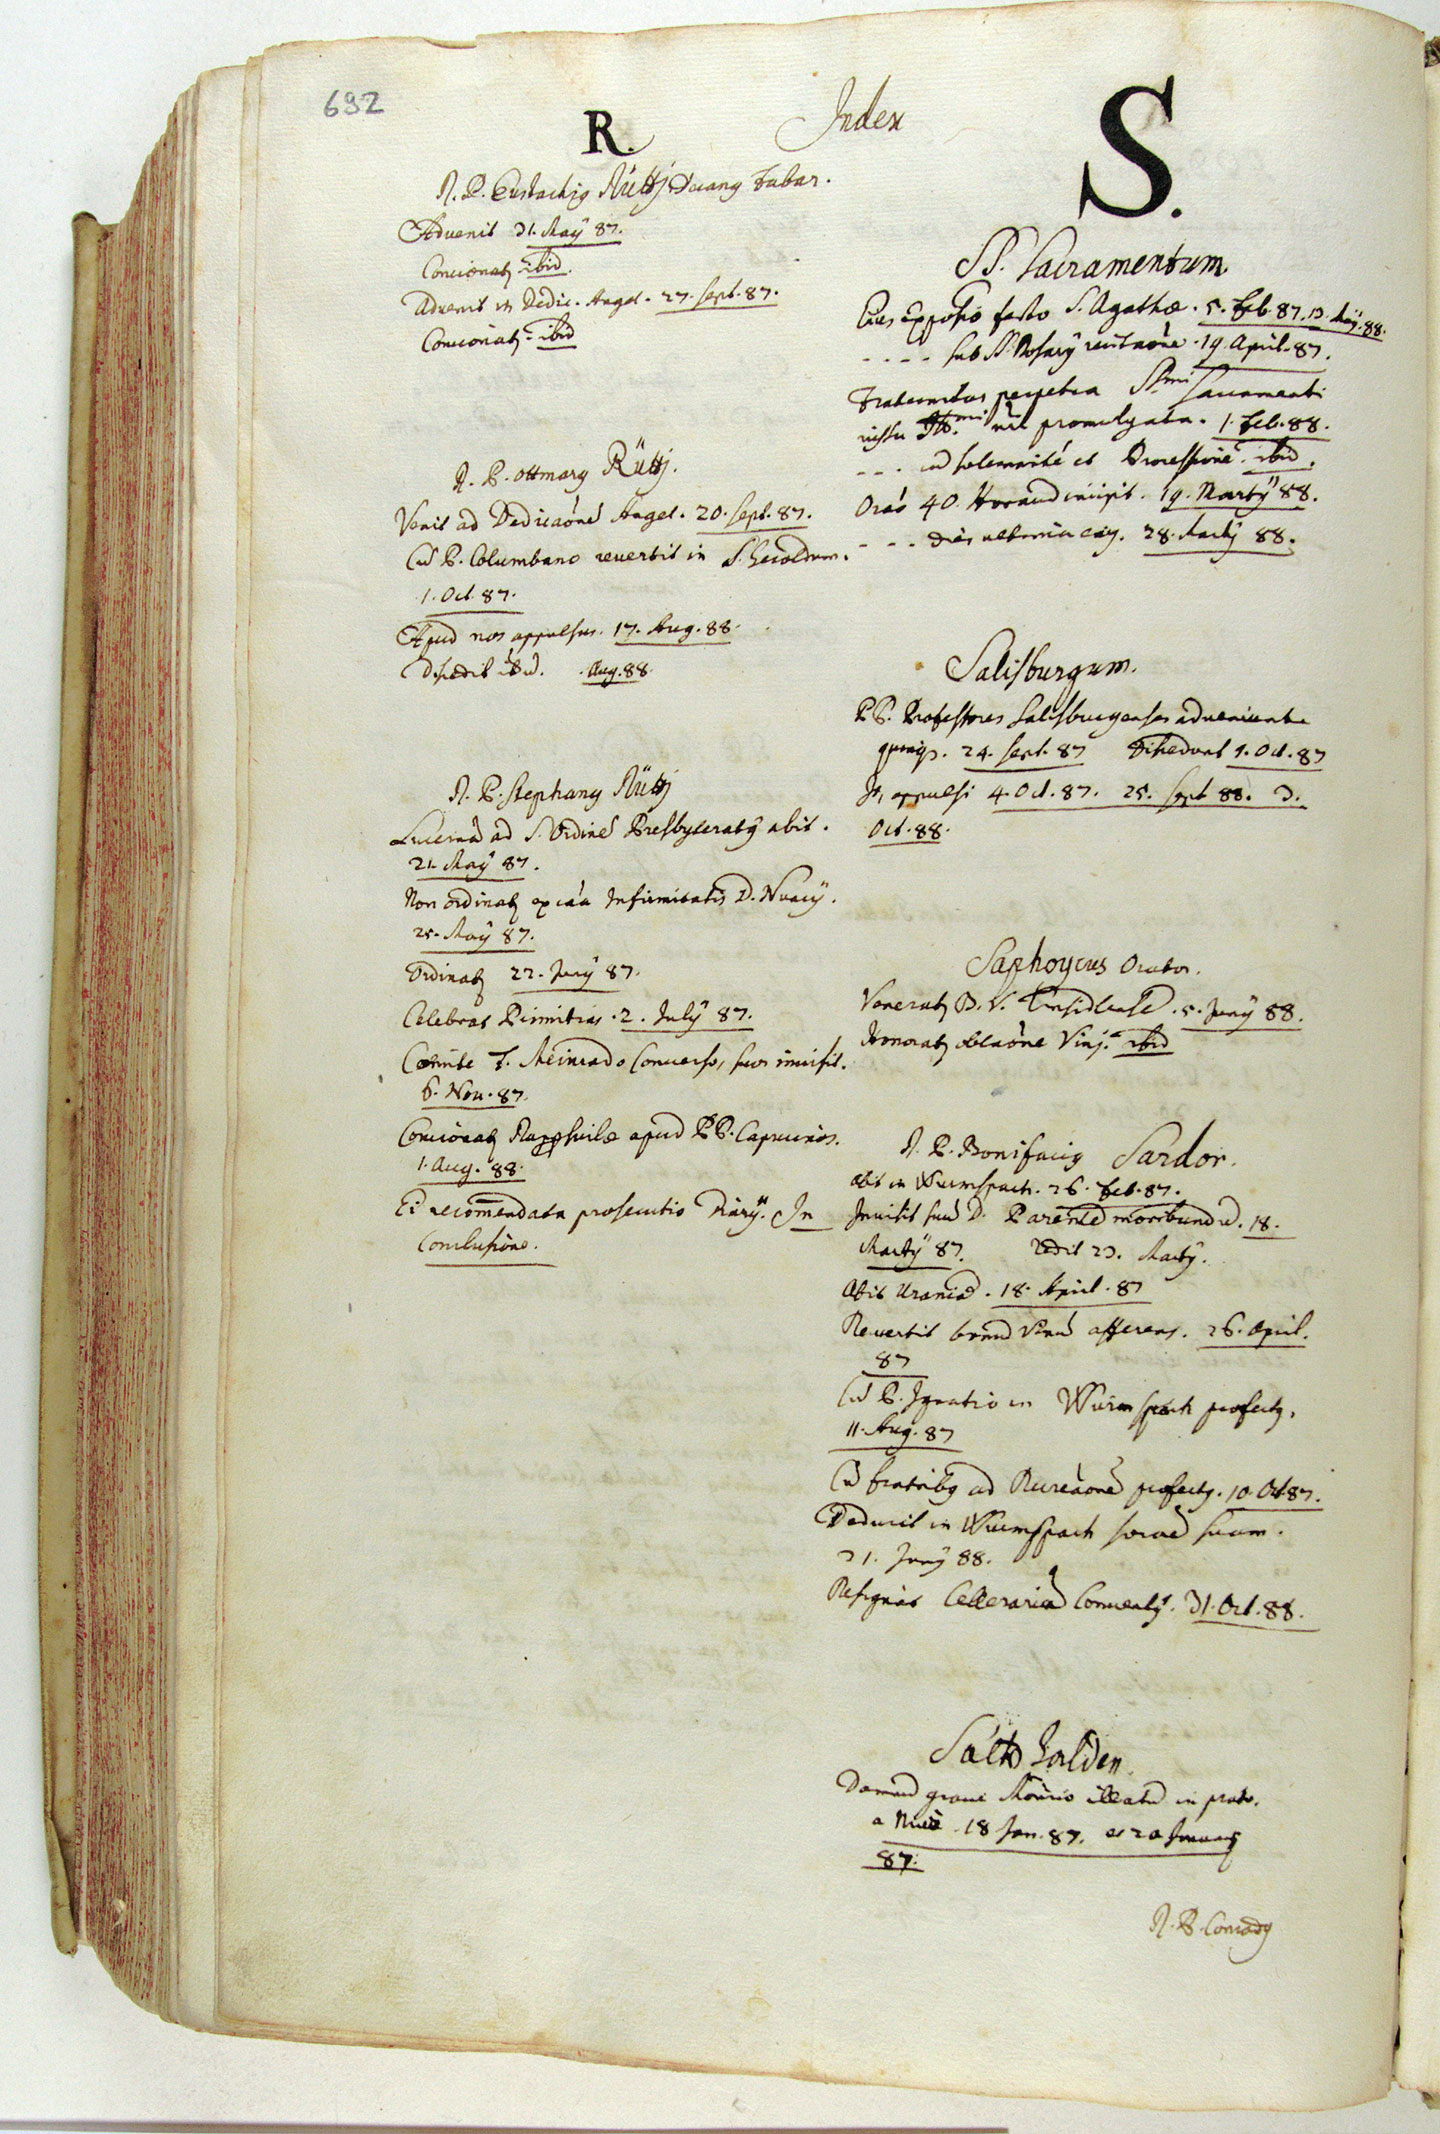 692
Index
R.
R. P. Eustachiq Rüttj Decanq Fabar.
Advenit 31. Maÿ 87.
Concionatq ibid.
Advenit in Dedic. Angel. 27. Sept. 87.
Concionatq. ibid
R. P. Ottmarq Rüttj.
Venit ad Dedicaōne Angel. 20. Sept. 87.
Cū P. Columbano revertit in S. Geroldum.
1. Oct. 87.
Apud nos appulsus. 17. Aug. 88.
Discedit Aug. 88.
R. P. Stephanq Rüttj
Lucernā ad S. Ordinē Presbyteratq abit.
21. Maÿ 87.
Non ordinatq ex cāa Infirmitatis D. Nuncÿ.
25. Maÿ 87.
Ordinatq 22. Junÿ 87.
Celebrat Primitias. 2. Julÿ 87.
Comite F. Meinrado Converso, suos invisit.
6. Nov. 87.
Concionatq Rappsvilæ apud PP. Capucinos.
1. Aug. 88.
Ei recom̄endata prosecutio Diarÿ. In
Conclusione.
S.
SS. Sacramentum
Eius Expositio festo S. Agathæ. 5. Feb. 87. 13. Maÿ. 88.
- - - - sub S. Rosarÿ recitaōne. 19. April. 87.
Fraternitas perpetua SSmi Sacramenti
iussu Rmi nri promulgata. 1. Feb. 88.
- - - cū solemnitē et Processione. ibid.
Oraō 40. Horarū incipit. 19. Martÿ 88.
- - - dies ultimus eiq. 28. Martÿ 88.
Salisburgum.
PP. Professores Salisburgenses adveniunt
24. Sept. 87 Discedunt 1. Oct. 87
It, appulsi 4. Oct. 87. 25. Sept 88. 3.
Oct. 88.
Saphoycus Orator.
Veneratq B. V. Einsidlensē. 5. Junÿ 88.
Honoratq oblaōne Vinj. ibid
R. P. Bonifaciq Sardor.
Abit in Wurmspach. 26. Feb. 87.
Invisit suū D. Parentē moribundū. 18.
Martÿ 87. Redit 23. Martÿ.
Abit Uraniā. 18. April. 87
Revertit bonū Vinū afferens. 26. April.
87
Cū P. Ignatio in Wurmspach profectq.
11. Aug. 87
Cū fratribq ad Recreaōne profectq. 10. Oct 87.
Deducit in Wurmspach sororē suam.
21. Junÿ 88.
Resignat Cellerariā Conventq. 31. Oct. 88.
Sattd halden.
Damnū grave illatū in prato.
a Nive 18 Jan. 87. et 20 Januarÿ
87.
R. P. Conradq